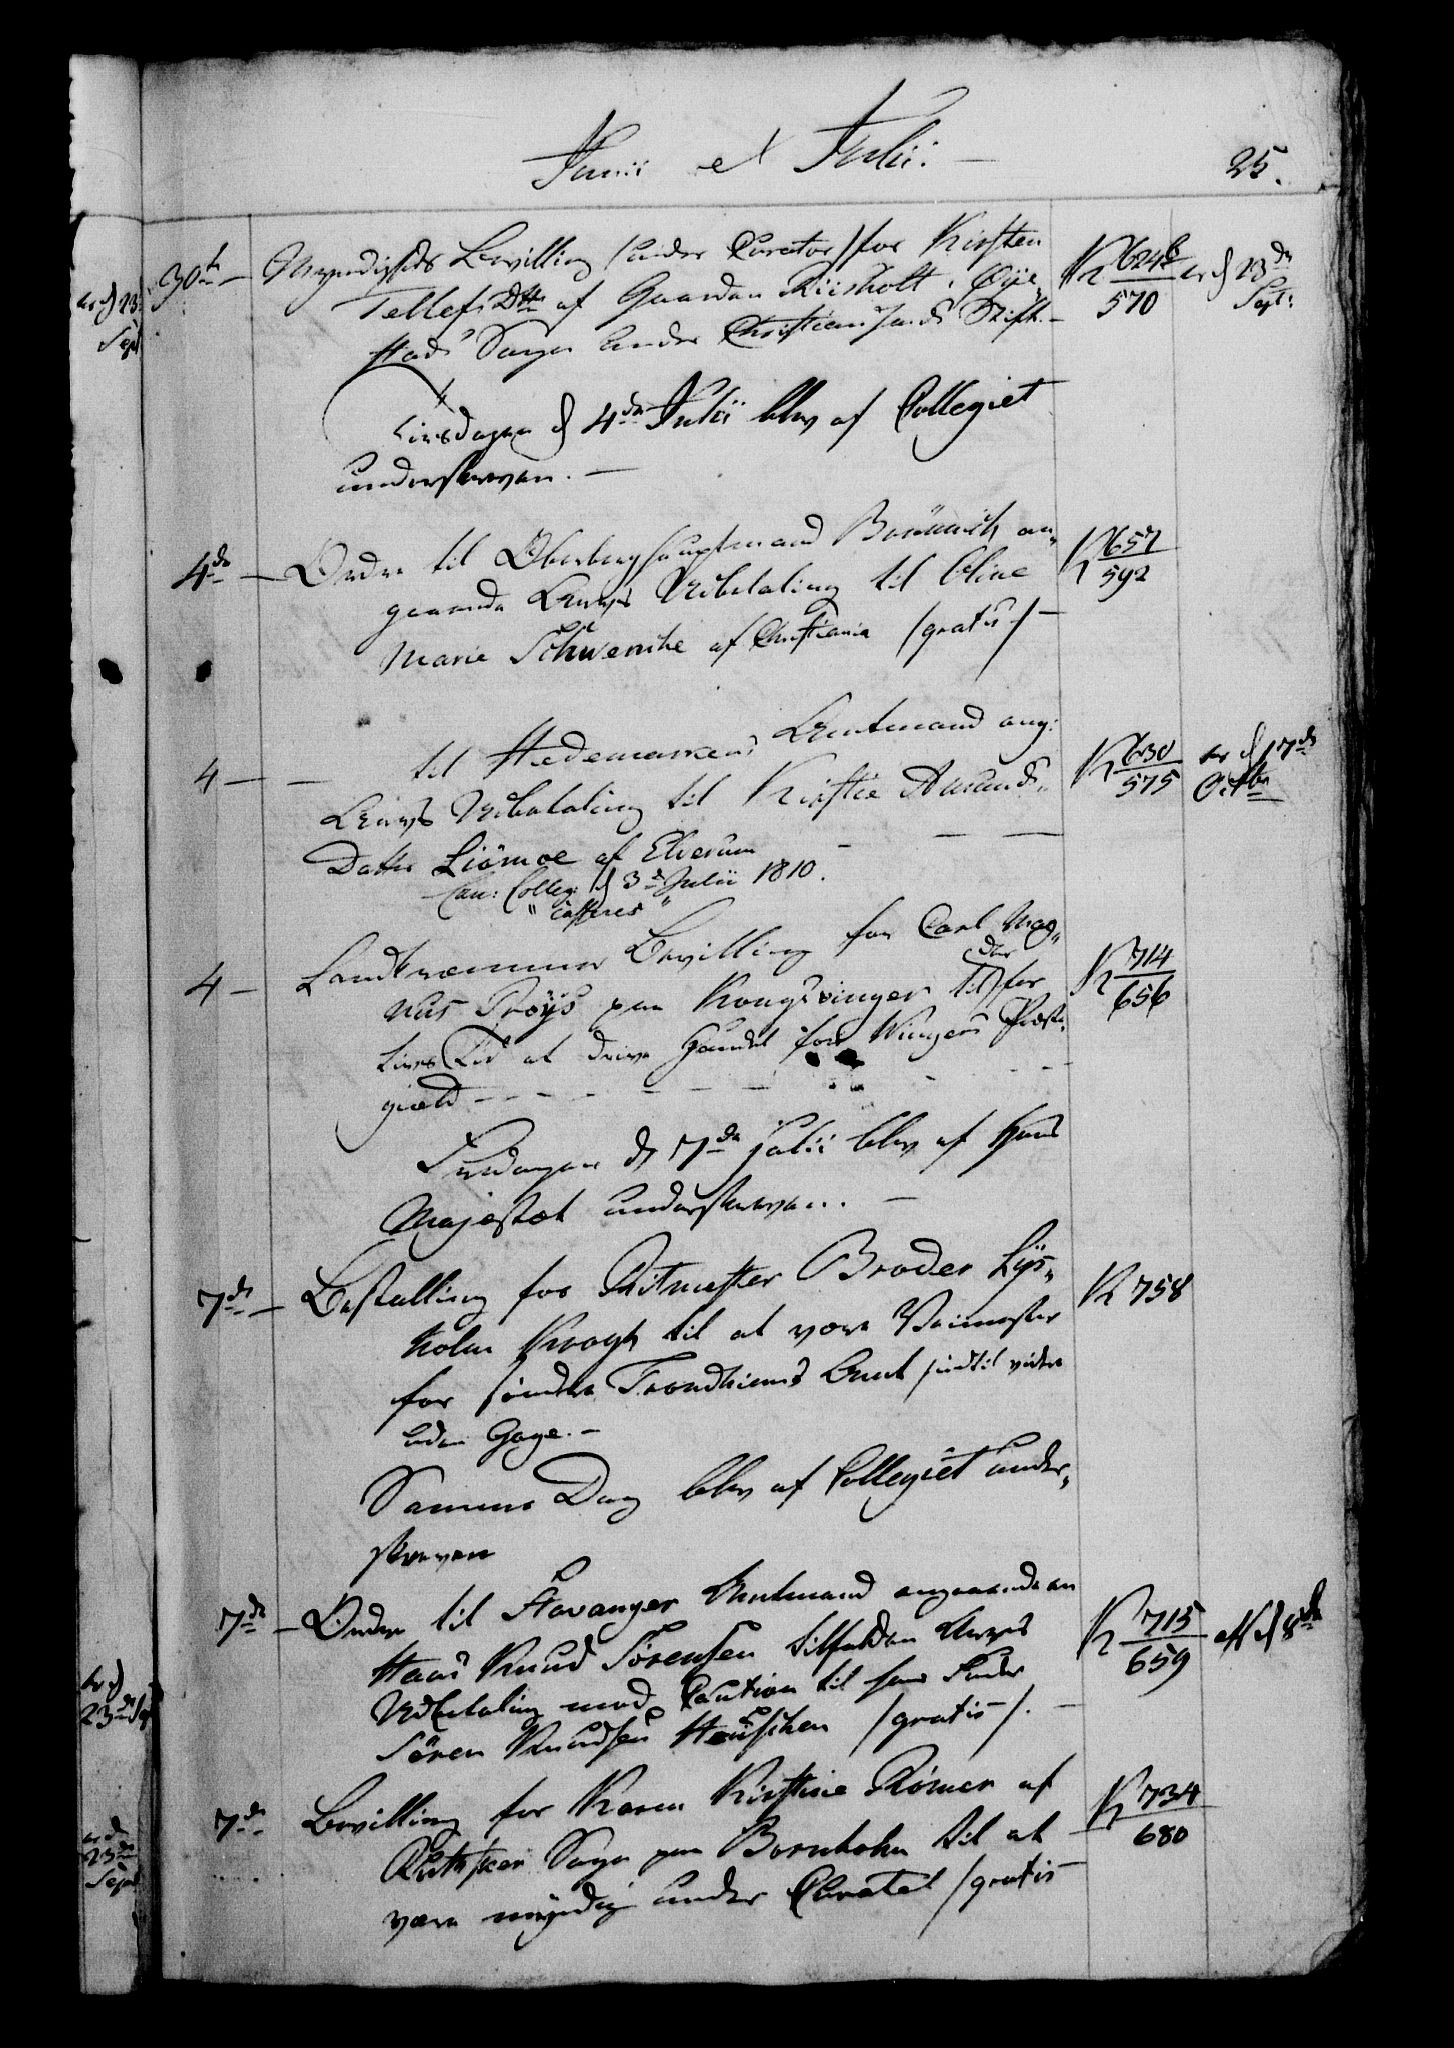 Junii et Julii. —
25.
30te — Myndigheds Bevilling (under Curator) for Kirsten
Tellefs Dtter af Gaarden Riisholt i Øye-
stads Sogn under Christiansands Stift. —
K 624b/570
er d 23de Sept:
Tirsdagen d 4de Julii blev af Collegiet
underskreven. —
4de — Ordre til Oberberghauptmand Brünnich an-
gaaende Arvs Udbetaling til Oline
Marie Schwencke af Christiania /gratis/ —
K 657/592
4 — — til Hedemarkens Amtmand ang:
Arvs Udbetaling til Kirstie Amunds-
Datter Liömoe af Elverum — — —
Can: Colleg: d 3de Julii 1810.
" casseres "
K 630/575
er d 17de Octbr
4 — Landkræmmer Bevilling for Carl Mag-
nus Thröys paa Kongsvinger til for
Lives Tid at drive Handel for Wingers Præste-
gield — — — —
K 714/656
Fredagen d 7de Julii blev af Hans
Majestæt underskreven. —
7de — Bestalling for Ritmester Broder Lys-
holm Krogh til at være Veimester
for søndre Trondhiems Amt indtil videre
uden Gage. —
K 758
Samme Dag blev af Collegiet under-
skreven
7de — Ordre til Stavanger Amtmand angaaende en
Hans Knud Sörensen tilfalden Arvs
Udbetaling mod Caution til hans Fader
Sören Knudsen /gratis/. —
K 715/659
7de Bevilling for Karen Kirstine Römer af
Ruthsker Sogn paa Bornholm til at
være myndig under Curatel /gratis
K 734/680